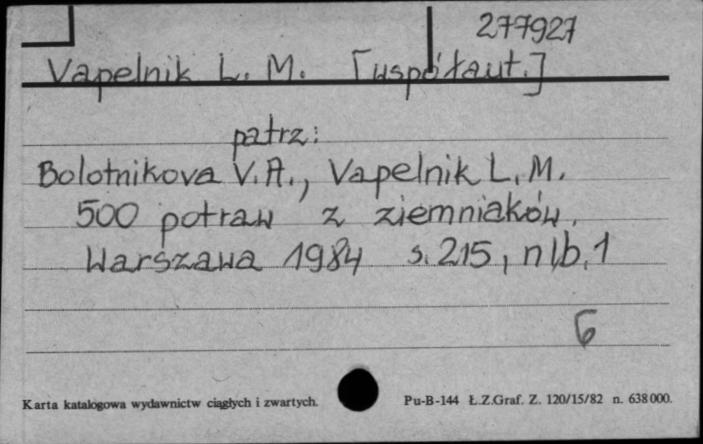 277927
Vapelnik L. M. [współaut.]
patrz:
Bolotnikova V.A., Vapelnik L.M.
500 potraw z ziemniaków.
Warszawa 1984 s. 215, nlb. 1
6
Karta katalogowa wydawnictw ciągłych i zwartych.
Pu-B-144 Ł.Z.Graf. Z. 120/15/82 n. 638000.